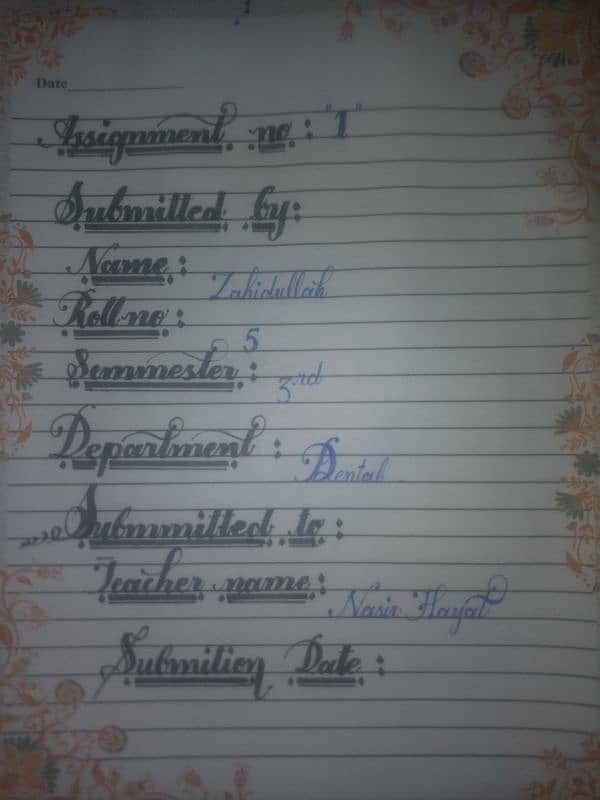 1
Date
Assignment no : "1"
Submitted by:
Name :
Zahidullah
Roll no :
5
Semmester :
3rd
Department :
Dental
Submmitted to :
Teacher name :
Nasir Hayat
Submition Date :